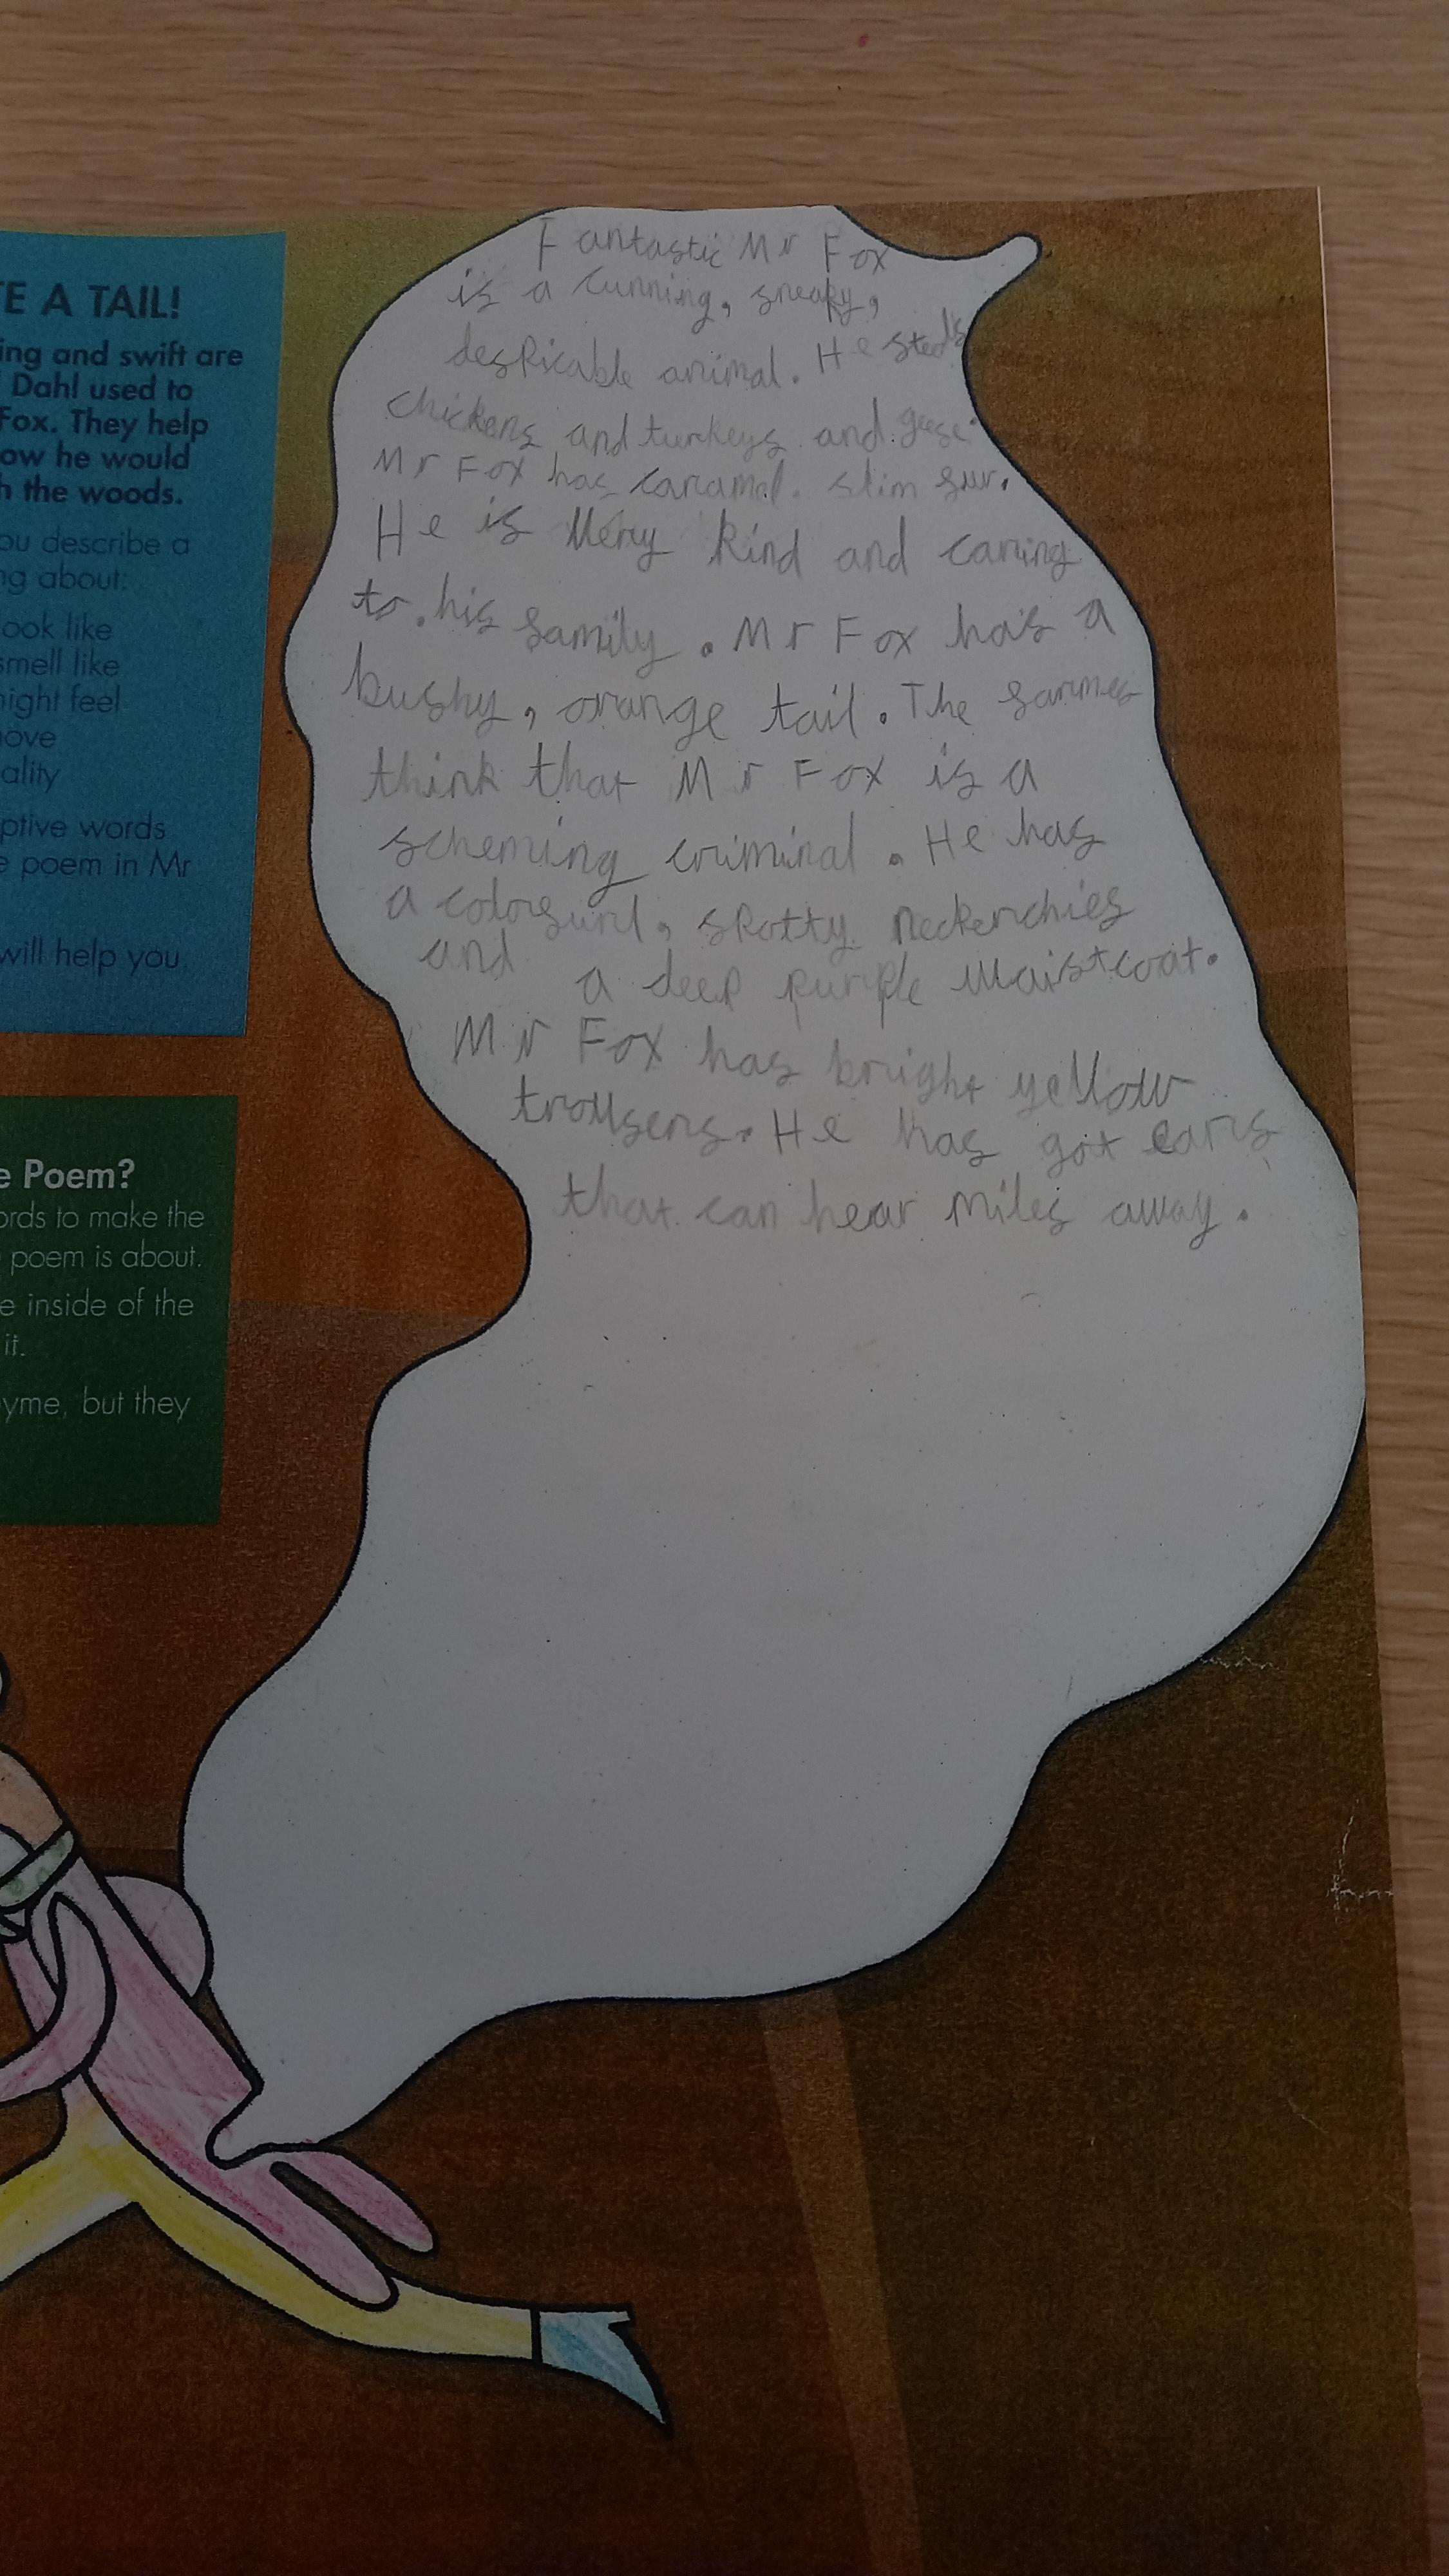 E A TAIL!
ing and swift are
Dahl used to
Fox. They help
ow he would
h the woods.
ou describe a
ng about:
ook like
smell like
night feel
ove
ality
ptive words
e poem in Mr
will help you.
e Poem?
ords to make the
poem is about.
e inside of the
it.
yme, but they
Fantastic Mr Fox
is a cunning, sneaky,
despicable animal. He steals
chickens and turkeys and geese.
Mr Fox has caramel. slim fur.
He is very kind and caring
to his family. Mr Fox has a
bushy, orange tail. The farmes
think that Mr Fox is a
scheming criminal. He has
a colorfurl, spotty neckerchief
and a deep purple waistcoat.
Mr Fox has bright yellow
trousers. He has got ears
that can hear miles away.